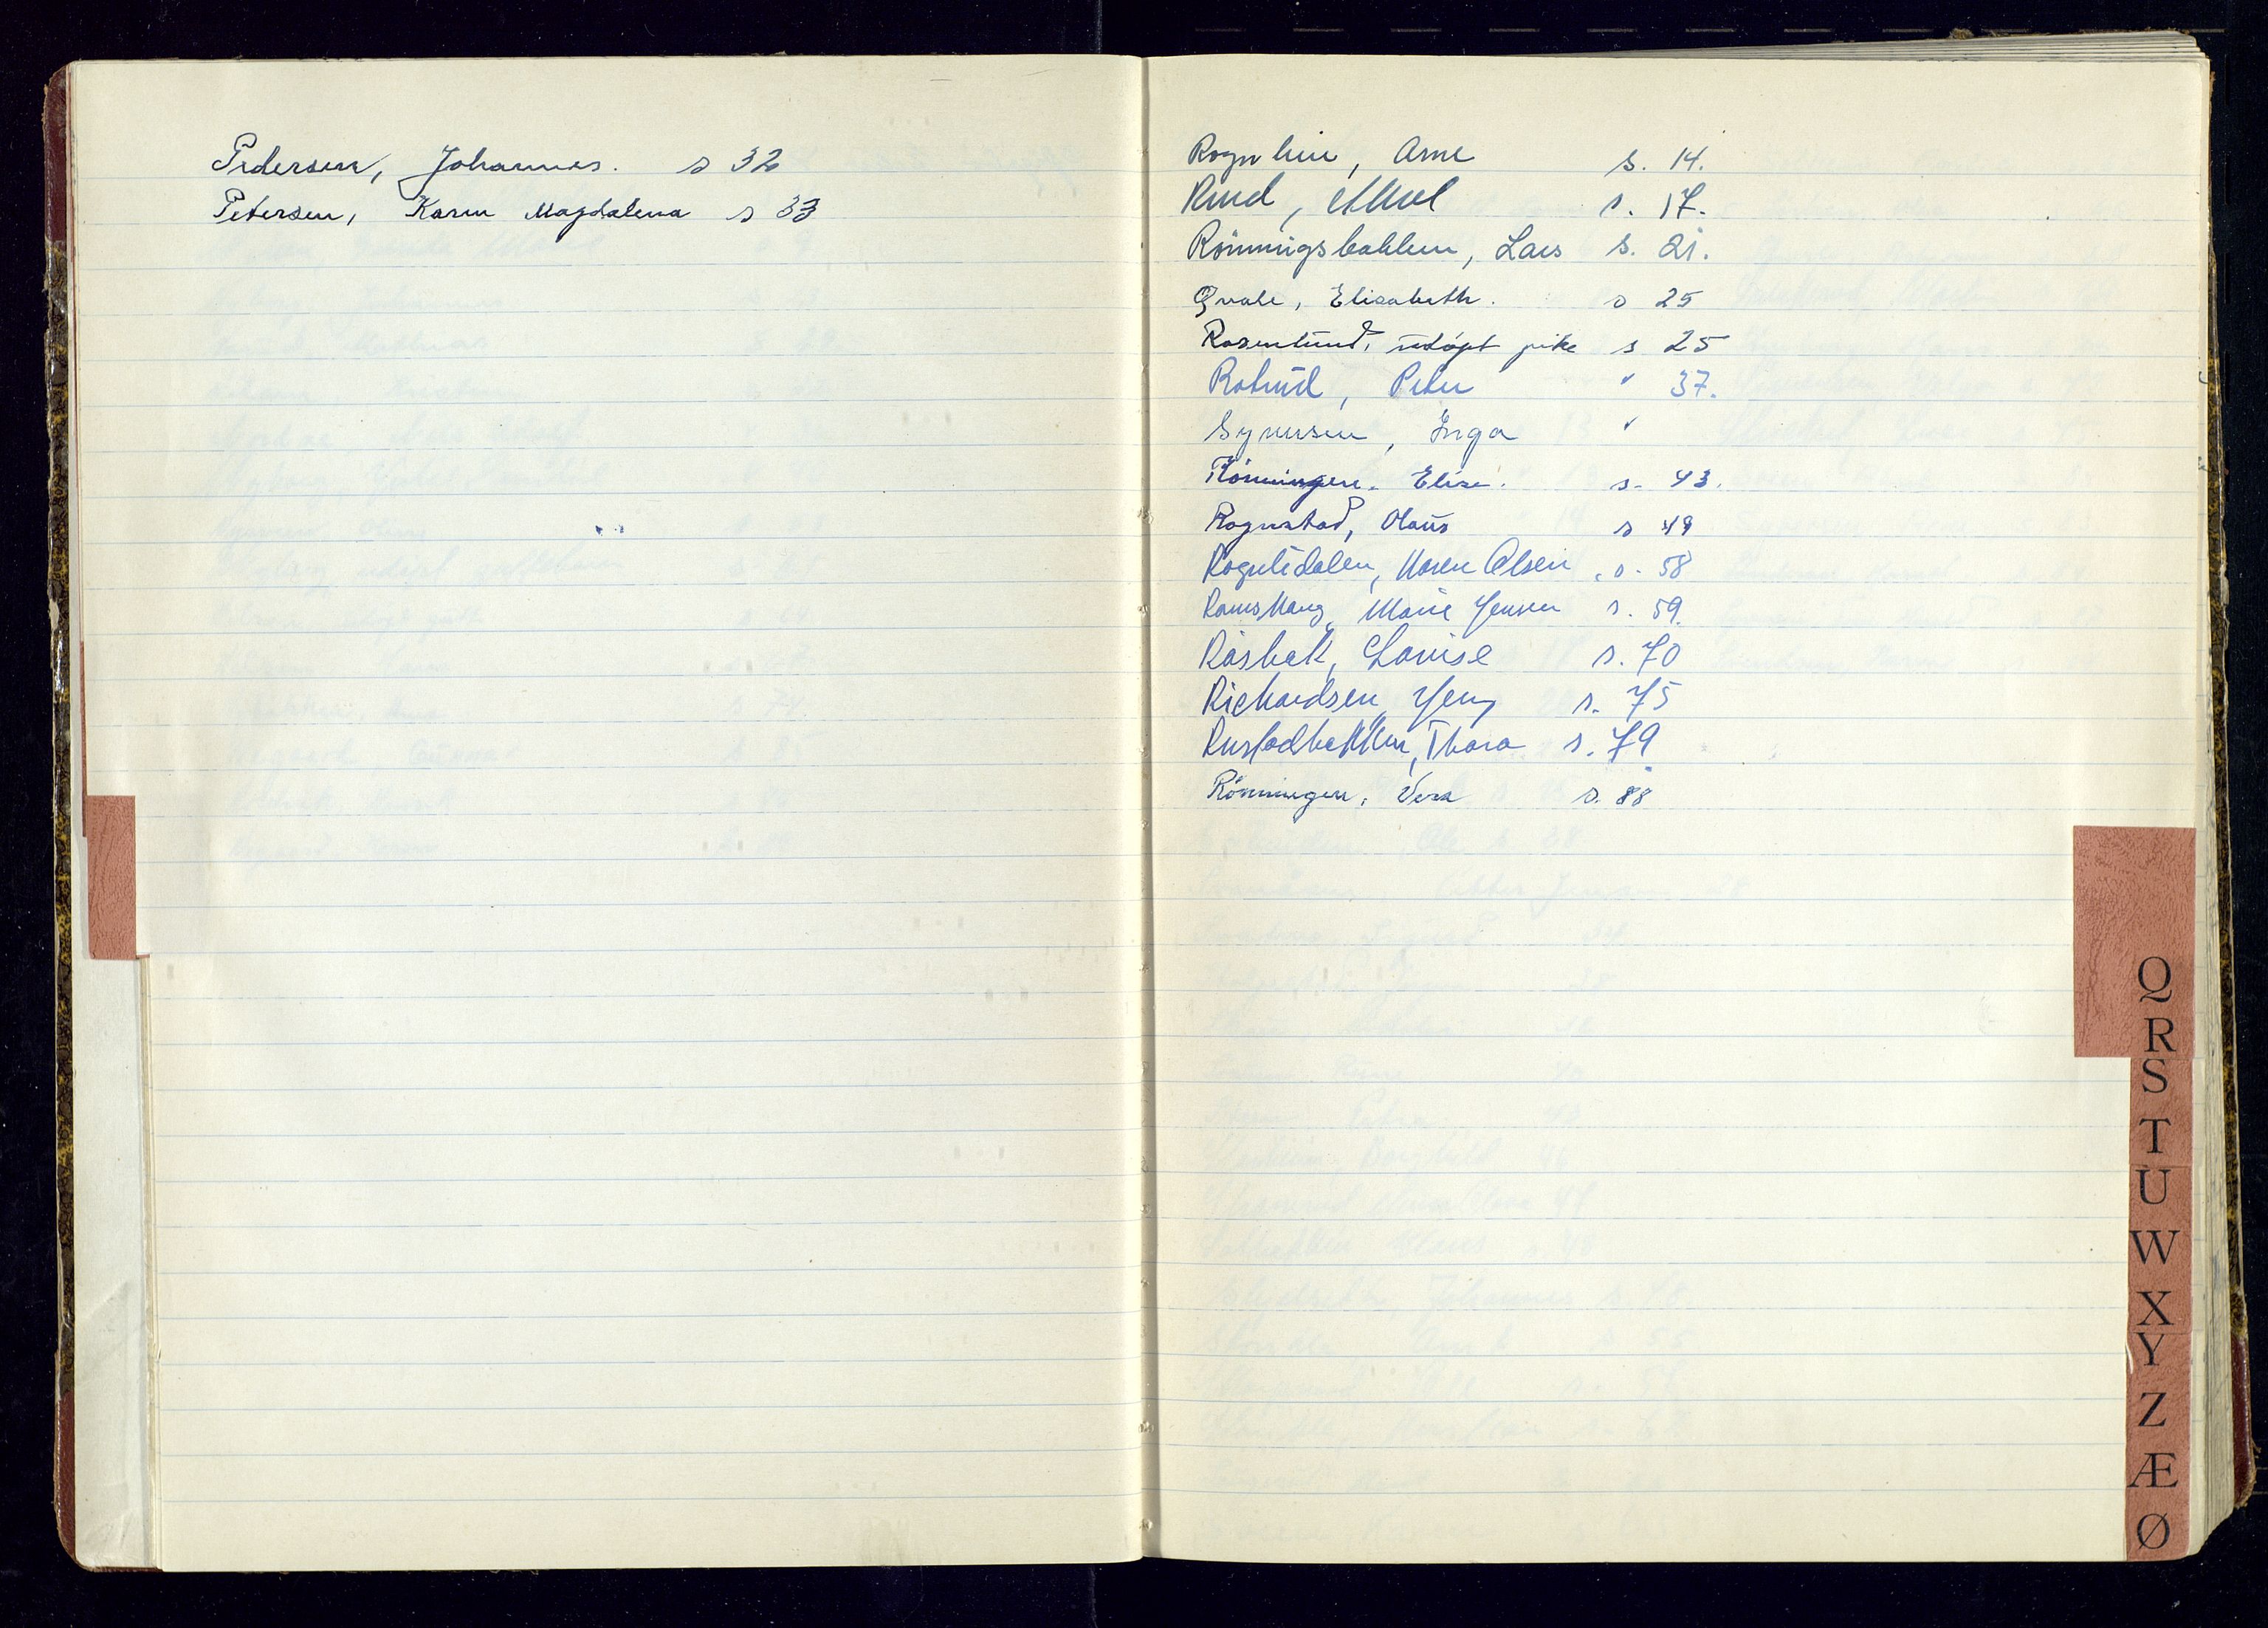 Pedersen, Johannes. s 32
Petersen, Karen Magdalena s 33
Rognlien, Arne s. 14.
Rud, s. 17.
Rönningsbakken, Lars s. 21.
Qvale, Elisabeth. s 25
Rosenlund, udöpt pike s 25
Rotnid, Peter " 37.
Synnsen, Inga "
Rönningen. Elise. s. 43.
Rognstad, Olaus s 49
Rognlidalen, Maren Olsen . s. 58
Ramskaug, Marie Jensen s. 59.
Råsbek, Lovise s. 70
Richardsen, Jeny s. 75
Rustadbakken, Thora s. 79
Rönningen, Vera s. 88
Q
R
S
T
U
W
X
Y
Z
Æ
Ø